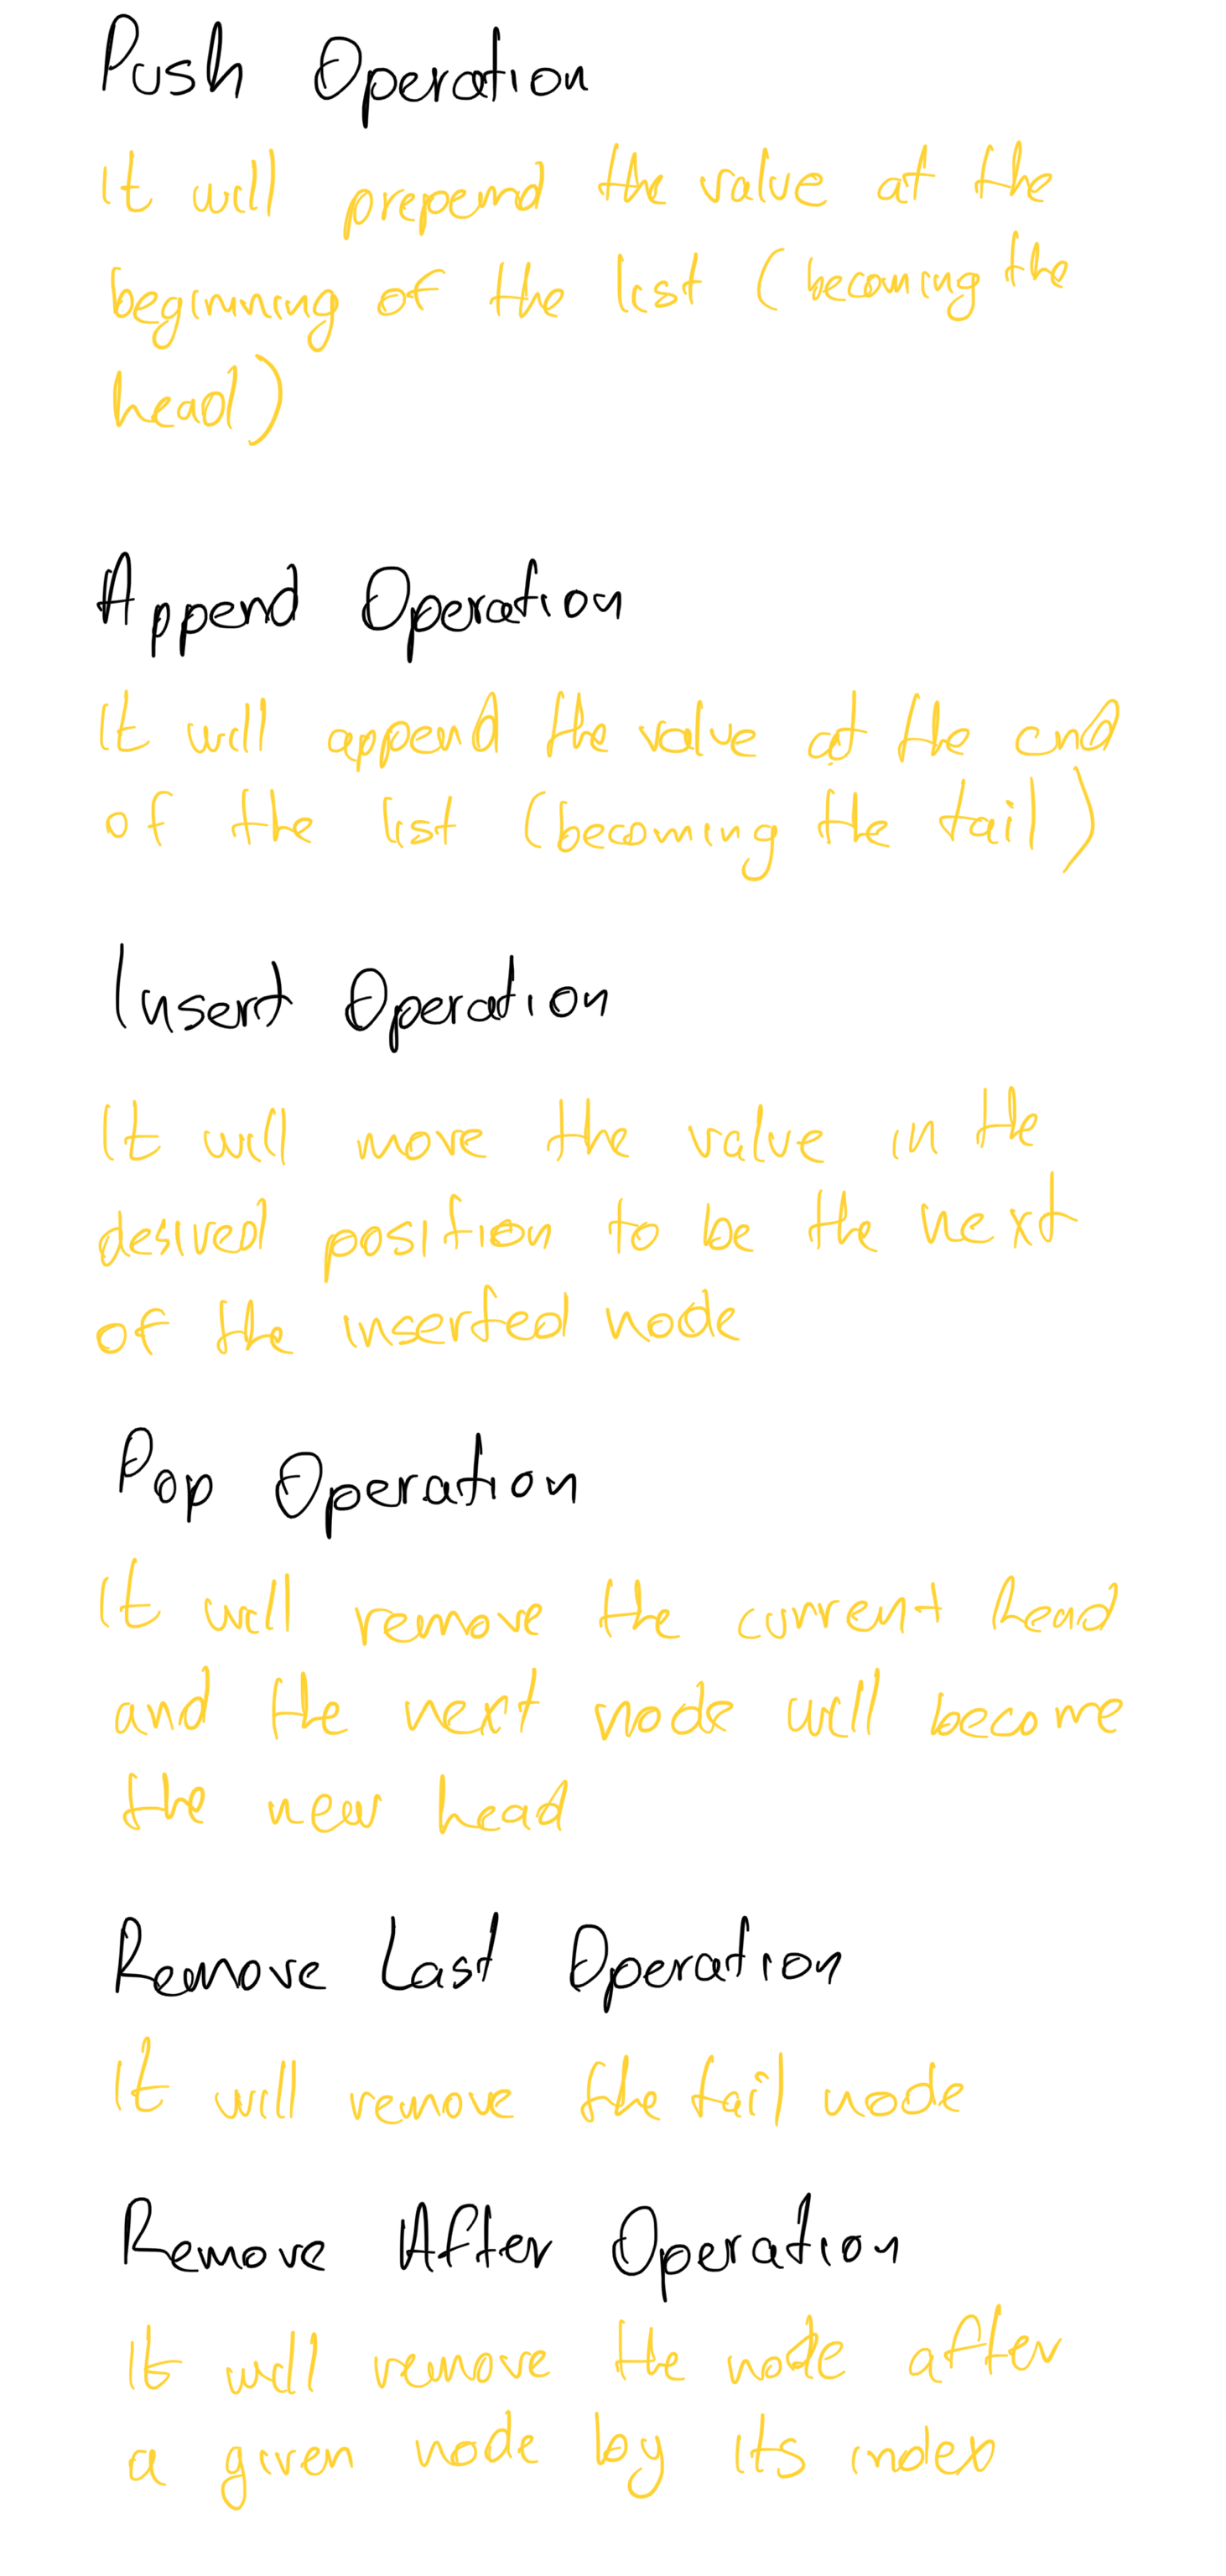 Push Operation
It will prepend the value at the
beginning of the list (becoming the
head)
Append Operation
It will append the value at the end
of the list (becoming the tail)
Insert Operation
It will move the value in the
desired position to be the next
of the inserted node
Pop Operation
It will remove the current head
and the next node will become
the new head
Remove Last Operation
It will remove the tail node
Remove After Operation
It will remove the node after
a given node by its index